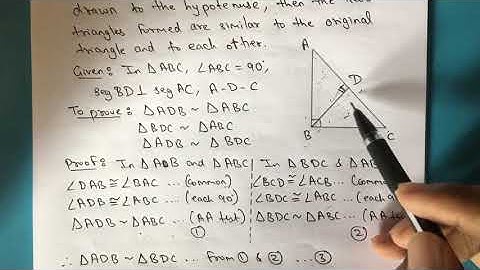 drawn to the hypotenuse, then the two
triangles formed are similar to the original
triangle and to each other.
Given: In △ABC, ∠ABC = 90°,
seg BD ⊥ seg AC, A-D-C
To prove: △ADB ~ △ABC
△BDC ~ △ABC
△ADB ~ △BDC
A
D
B
C
Proof: In △ADB and △ABC
∠DAB ≅ ∠BAC ... (common)
∠ADB ≅ ∠ABC ... (each 90°)
△ADB ~ △ABC ... (AA test)
①
In △BDC & △AB
∠BCD ≅ ∠ACB... (common
∠BDC ≅ ∠ABC... (each 90°
△BDC ~ △ABC ... (AA test
②
∴ △ADB ~ △BDC ... from ① & ② ... ③